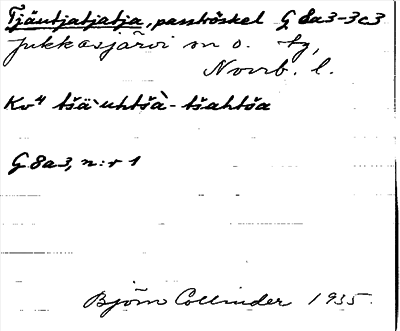 Tjäutjatjatja, pasströskel G 8a3-3c3
Jukkasjärvi sn o. tg,
Norrb. l.
Kv" tšä`uhtšà-tšahtša
G 8a3, n:r 1
Björn Collinder 1935.